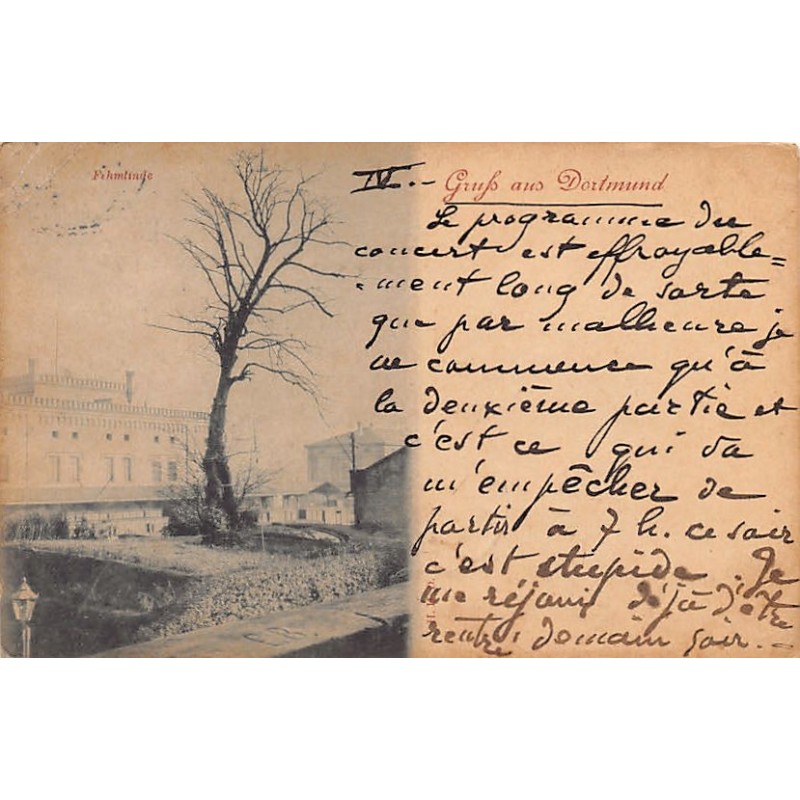 Fehmlinde
IV.- Gruß aus Dortmund
Le programme du
concert est effroyable=
-ment long de sorte
que par malheure je
ne commence qu'à
la deuxième partie et
c'est ce qui va
m'empêcher de
partir à 7 h. ce soir
c'est stupide. Je
me réjouis déjà d'être
rentré demain soir.-